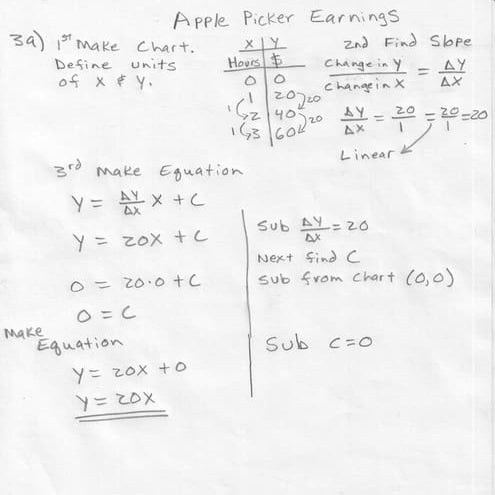 Apple Picker Earnings
3a) 1st Make Chart.
Define units
of X & Y.
X | Y
Hours | $
0 | 0
1 | 20
2 | 40
3 | 60
1 20
1 20
2nd Find Slope
Change in Y / Change in X = ΔY / ΔX
ΔY / ΔX = 20 / 1 = 20 / 1 = 20
Linear
3rd Make Equation
Y = ΔY/ΔX X + C
Y = 20X + C
Sub ΔY/ΔX = 20
Next find C
0 = 20·0 + C
Sub from chart (0,0)
0 = C
Make
Equation
Sub C=0
Y = 20X + 0
Y = 20X